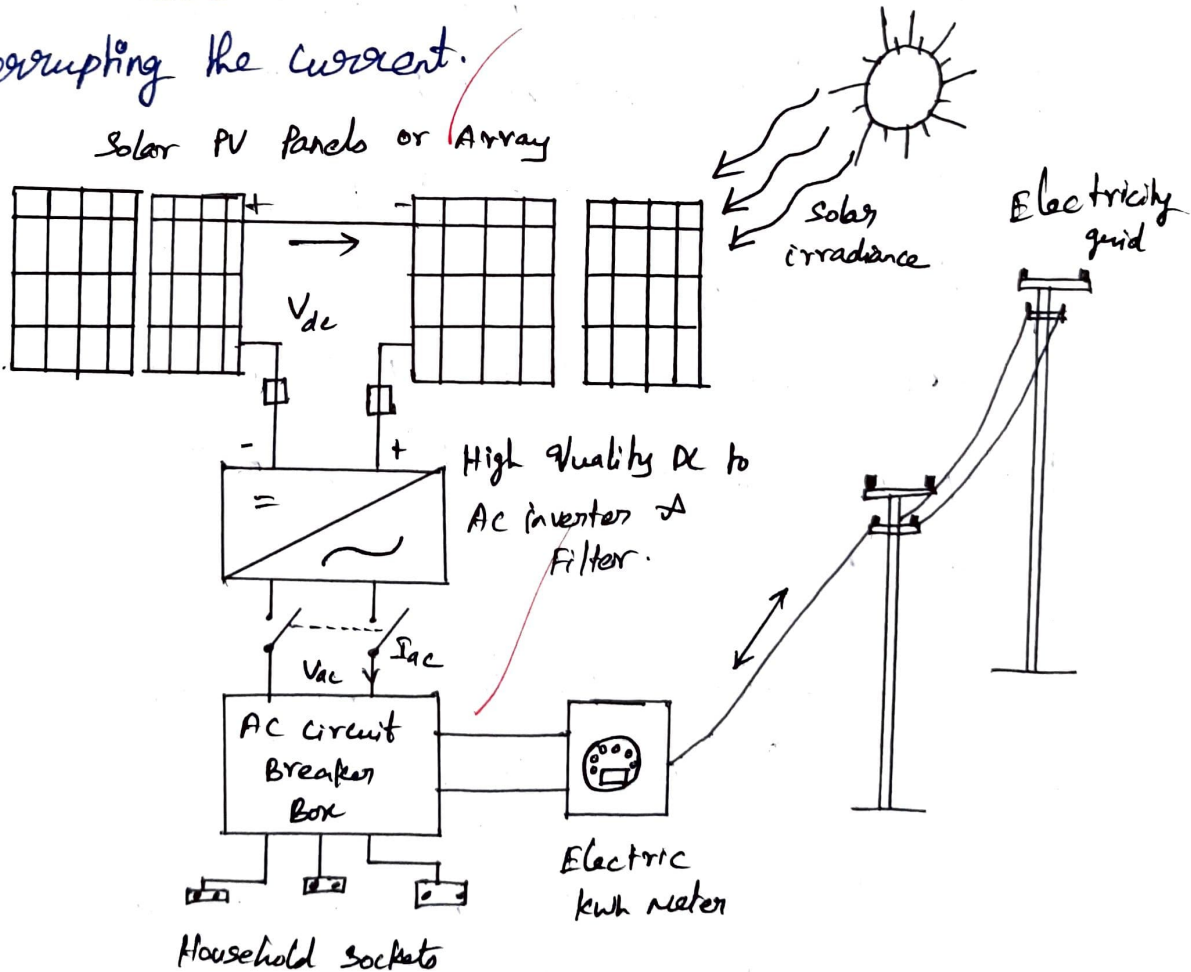 errupting the current.
Solar PV Panels or Array
+
-
Solar
irradiance
Electricity
grid
Vdc
-
+
High Quality DC to
AC inverter &
Filter.
=
Vac
Iac
AC Circuit
Breaker
Box
Electric
kwh meter
Household sockets